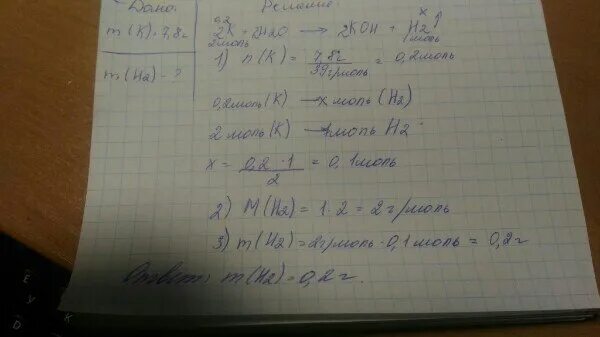 Дано:
m(K)=7,8г
m(H2) - ?
Решение:
0,2 x
2K + 2H2O → 2KOH + H2↑
2моль 1моль
1) n(K) = 7,8г / 39г/моль = 0,2моль
0,2моль(K) → x моль (H2)
2 моль(K) → 1моль H2
x = 0,2 · 1 / 2 = 0,1моль
2) M(H2) = 1·2 = 2г/моль
3) m(H2) = 2г/моль · 0,1моль = 0,2г
Ответ: m(H2) = 0,2г.